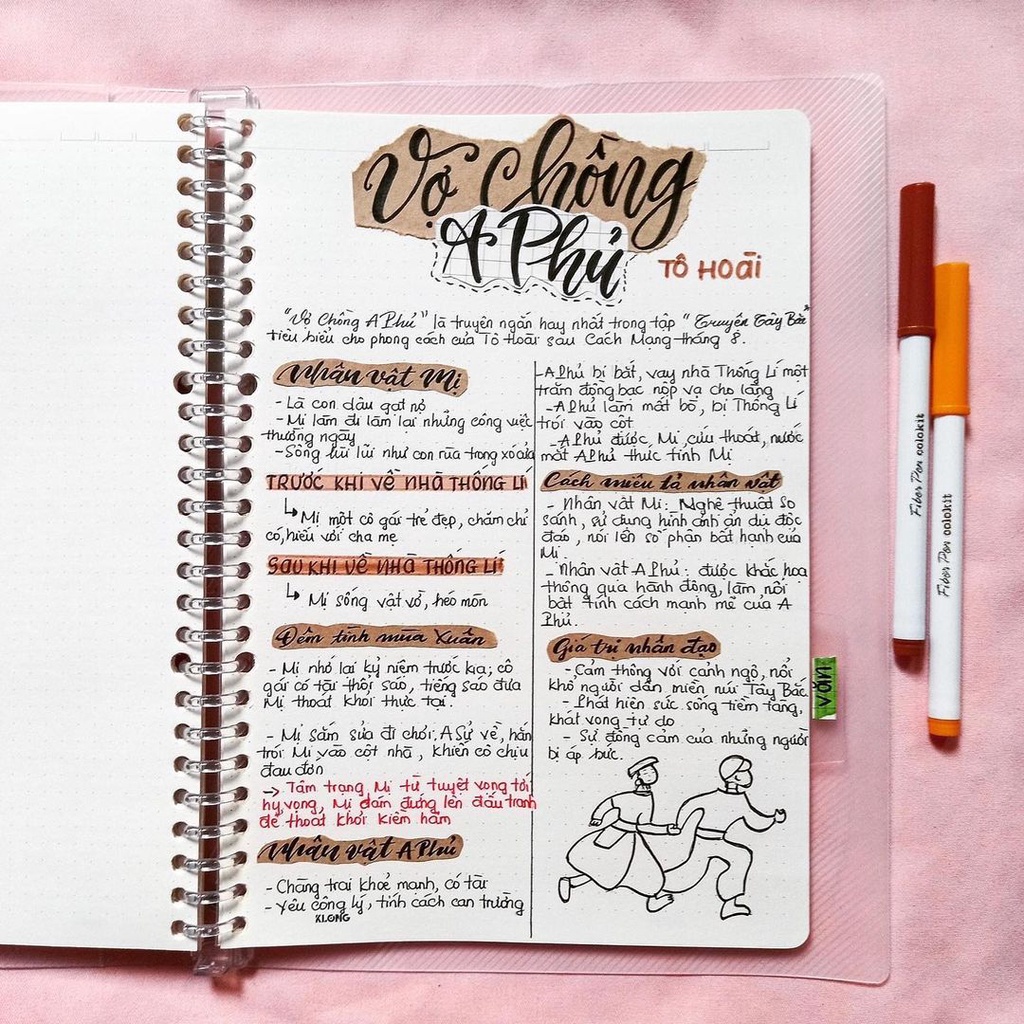 Vợ chồng
A Phủ
TÔ HOÀI
"Vợ Chồng A Phủ" là truyện ngắn hay nhất trong tập "Truyện Tây Bắc"
tiêu biểu cho phong cách của Tô Hoài sau Cách Mạng tháng 8.
Nhân vật Mị
- Là con dâu gạt nợ
- Mị làm đi làm lại những công việc
thường ngày
- Sống lùi lũi như con rùa trong xó cửa
TRƯỚC KHI VỀ NHÀ THỐNG LÍ
↳ Mị một cô gái trẻ đẹp, chăm chỉ
có, hiếu với cha mẹ
SAU KHI VỀ NHÀ THỐNG LÍ
↳ Mị sống vật vờ, héo mòn
Đêm tình mùa Xuân
- Mị nhớ lại kỷ niệm trước kia; cô
gái có tài thổi sáo, tiếng sáo đưa
Mị thoát khỏi thực tại.
- Mị sắm sửa đi chơi, A Sử về, hắn
trói Mị vào cột nhà, khiến cô chịu
đau đớn
-> Tâm trạng Mị từ tuyệt vọng tới
hy vọng, Mị dám đứng lên đấu tranh
để thoát khỏi kiềm hãm
Nhân vật A Phủ
- Chàng trai khoẻ mạnh, có tài
- Yêu công lý, tính cách can trường
KLONG
- A Phủ bị bắt, vay nhà Thống Lí một
trăm đồng bạc nộp vạ cho làng
- A Phủ làm mất bò, bị Thống Lí
trói vào cột
- A Phủ được Mị cứu thoát, nước
mắt A Phủ thức tỉnh Mị
Cách miêu tả nhân vật
- Nhân vật Mị: Nghệ thuật so
sánh, sử dụng hình ảnh ẩn dụ độc
đáo, nói lên số phận bất hạnh của
Mị
- Nhân vật A Phủ: được khắc họa
thông qua hành động, làm nổi
bật tính cách mạnh mẽ của A
Phủ.
Giá trị nhân đạo
- Cảm thông với cảnh ngộ, nổi
khổ người dân miền núi Tây Bắc.
- Phát hiện sức sống tiềm tàng,
khát vọng tự do
- Sự đồng cảm của những người
bị áp bức.
văn
Fiber Pen oolokit
Fiber Pen oolokit